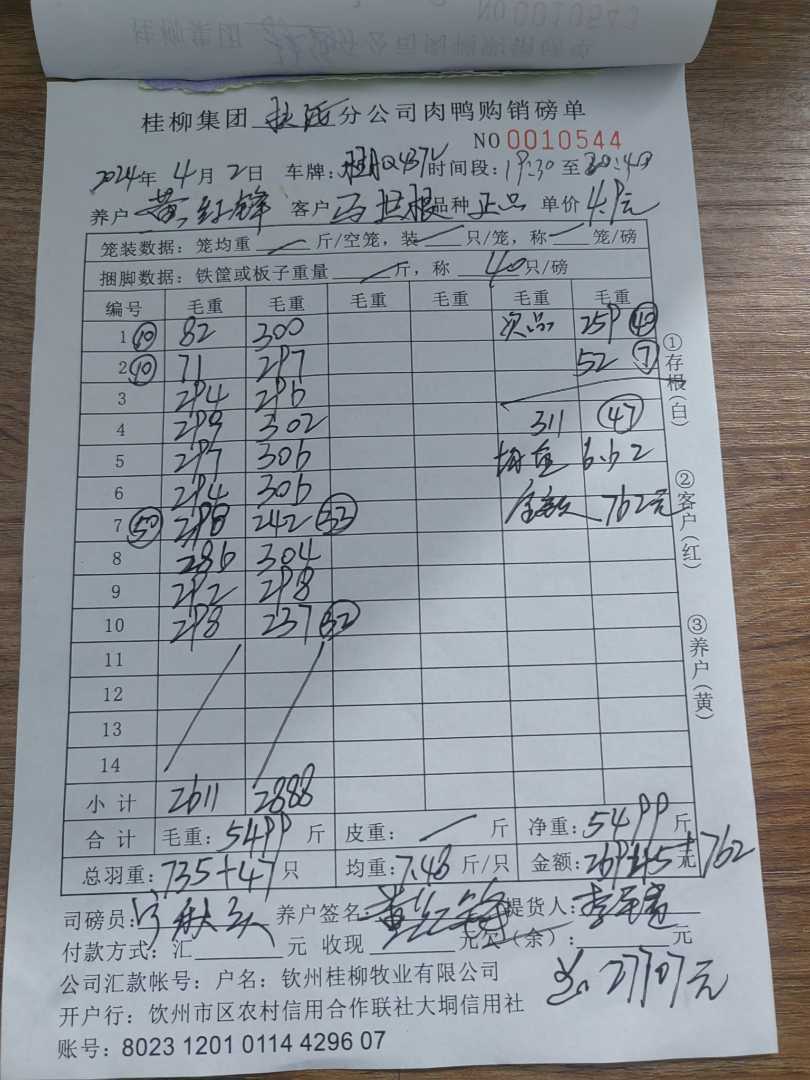 桂柳集团 分公司肉鸭购销磅单
NO 0010544
2024年 4月 2日 车牌: 时间段: 19:30 至 20:40
养户 黄红锋 客户 马 根 品种 正品 单价 4.9元
笼装数据: 笼均重 / 斤/空笼, 装 / 只/笼, 称 / 笼/磅
捆脚数据: 铁筐或板子重量 / 斤, 称 40 只/磅
编号 毛重 毛重 毛重 毛重 毛重 毛重
1 ⑩ 82 300 次品 259 ㊵
2 ⑩ 71 297 52 ⑦
3 294 296
4 299 302 311 ㊼
5 297 306 均重 6.62
6 294 306 金额 762元
7 ㊿ 298 242 ㉝
8 286 304
9 292 298
10 298 237 ㉜
11
12
13
14
小计 2611 2888
合计 毛重: 5499 斤 皮重: / 斤 净重: 5499 斤
总羽重: 735+47 只 均重: 7.48 斤/只 金额: 26945 元 +762
司磅员: 养户签名: 黄红锋 提货人: 李
付款方式: 汇 元 收现 元欠(余): 元
公司汇款帐号: 户名: 钦州桂柳牧业有限公司
总: 27707元
开户行: 钦州市区农村信用合作联社大垌信用社
账号: 8023 1201 0114 4296 07
①存根(白)
②客户(红)
③养户(黄)